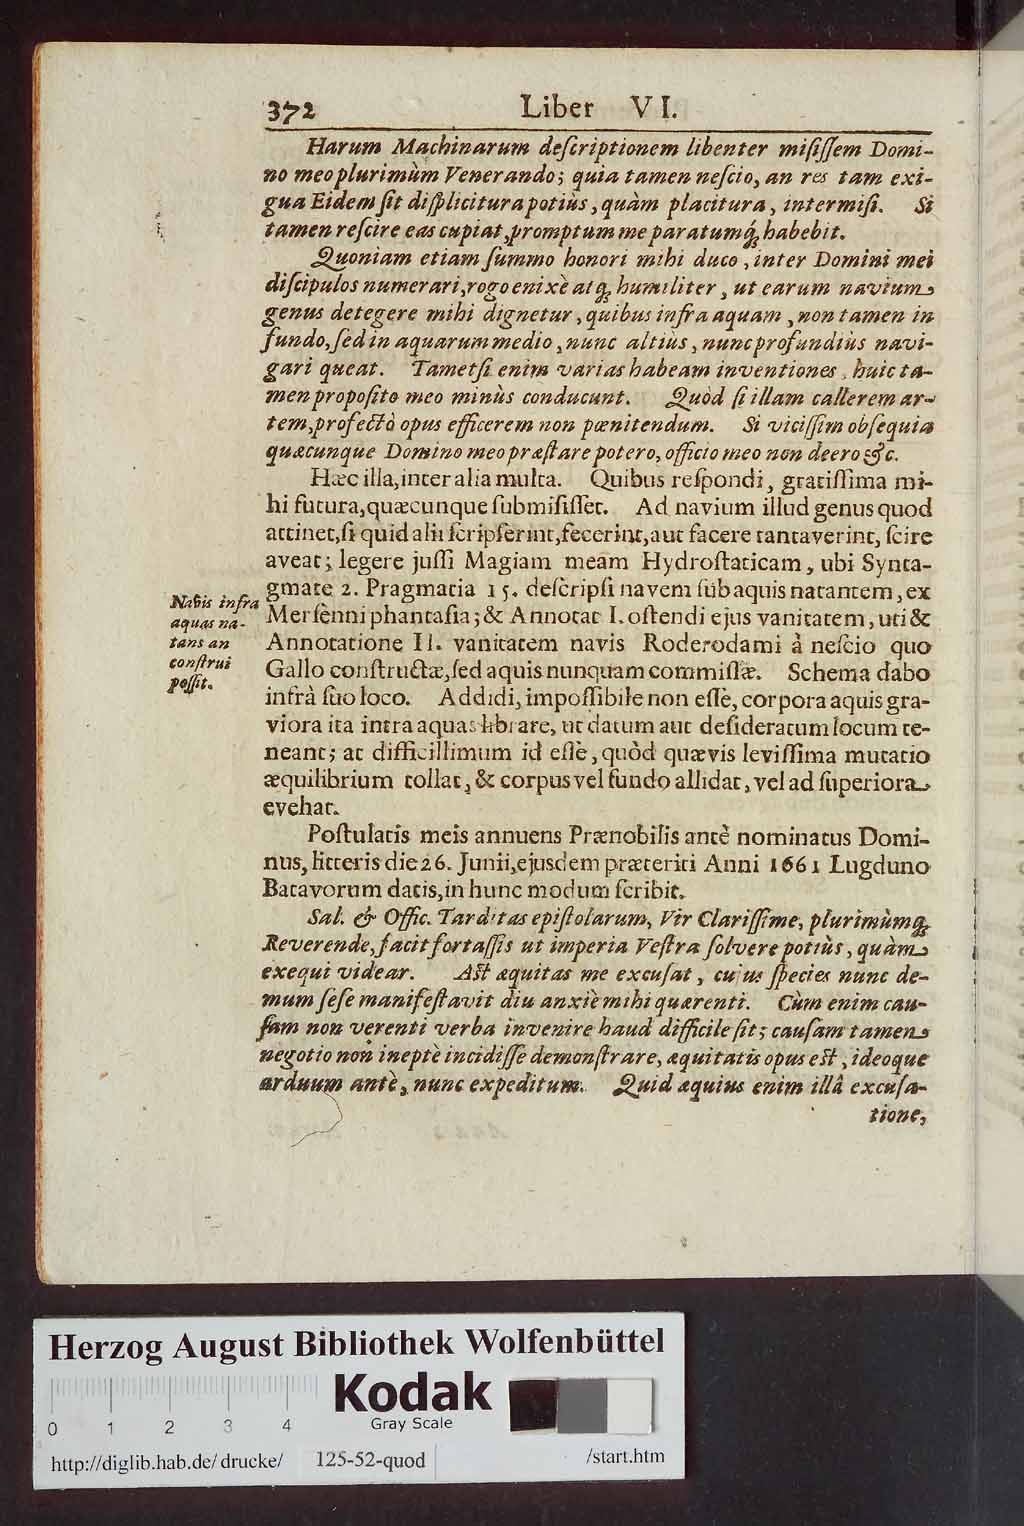 372 Liber VI.
Harum Machinarum deſcriptionem libenter miſiſſem Domi-
no meo plurimùm Venerando; quia tamen neſcio, an res tam exi-
gua Eidem ſit diſplicitura potiùs, quàm placitura, intermiſi. Si
tamen reſcire eas cupiat, promptum me paratumq́ꝫ habebit.
Quoniam etiam ſummo honori mihi duco, inter Domini mei
diſcipulos numerari, rogo enixè atqꝫ humiliter, ut earum navium
genus detegere mihi dignetur, quibus infra aquam, non tamen in
fundo, ſed in aquarum medio, nunc altiùs, nunc profundiùs navi-
gari queat. Tametſi enim varias habeam inventiones, huic ta-
men propoſito meo minùs conducunt. Quòd ſi illam callerem ar-
tem, profectò opus efficerem non pœnitendum. Si viciſſim obſequia
quæcunque Domino meo præſtare potero, officio meo non deero &c.
Hæc illa, inter alia multa. Quibus reſpondi, gratiſſima mi-
hi futura, quæcunque ſubmiſiſſet. Ad navium illud genus quod
attinet, ſi quid alii ſcripſerint, fecerint, aut facere tantaverint, ſcire
aveat; legere juſſi Magiam meam Hydroſtaticam, ubi Synta-
gmate 2. Pragmatia 15. deſcripſi navem ſub aquis natantem, ex
Merſènni phantaſia; & Annotat I. oſtendi ejus vanitatem, uti &
Annotatione II. vanitatem navis Roderodami à neſcio quo
Gallo conſtructæ, ſed aquis nunquam commiſſæ. Schema dabo
infrà ſuo loco. Addidi, impoſſibile non eſſe, corpora aquis gra-
viora ita intra aquas librare, ut datum aut deſideratum locum te-
neant; at difficillimum id eſſe, quòd quævis leviſſima mutatio
æquilibrium tollat, & corpus vel fundo allidat, vel ad ſuperiora
evehat.
Navis infra
aquas na-
tans an
conſtrui
poſſit.
Poſtulatis meis annuens Prænobilis antè nominatus Domi-
nus, litteris die 26. Junii, ejusdem præteriti Anni 1661 Lugduno
Batavorum datis, in hunc modum ſcribit.
Sal. & Offic. Tarditas epiſtolarum, Vir Clariſſime, plurimùmqꝫ
Reverende, facit fortaſſis ut imperia Veſtra ſolvere potiùs, quàm
exequi videar. Aſt æquitas me excuſat, cujus ſpecies nunc de-
mum ſeſe manifeſtavit diu anxiè mihi quærenti. Cùm enim cau-
ſam non verenti verba invenire haud difficile ſit; cauſam tamen
negotio non ineptè incidiſſe demonſtrare, æquitatis opus eſt, ideoque
arduum antè, nunc expeditum. Quid æquius enim illâ excuſa-
tione,
Herzog August Bibliothek Wolfenbüttel
Kodak
Gray Scale
0 1 2 3 4
http://diglib.hab.de/drucke/ 125-52-quod /start.htm